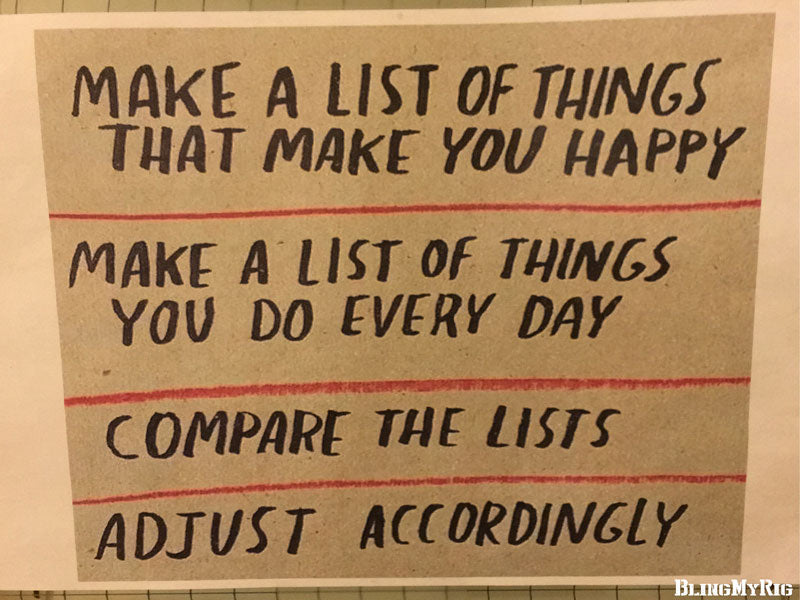 MAKE A LIST OF THINGS
THAT MAKE YOU HAPPY
MAKE A LIST OF THINGS
YOU DO EVERY DAY
COMPARE THE LISTS
ADJUST ACCORDINGLY
BLINGMYRIG